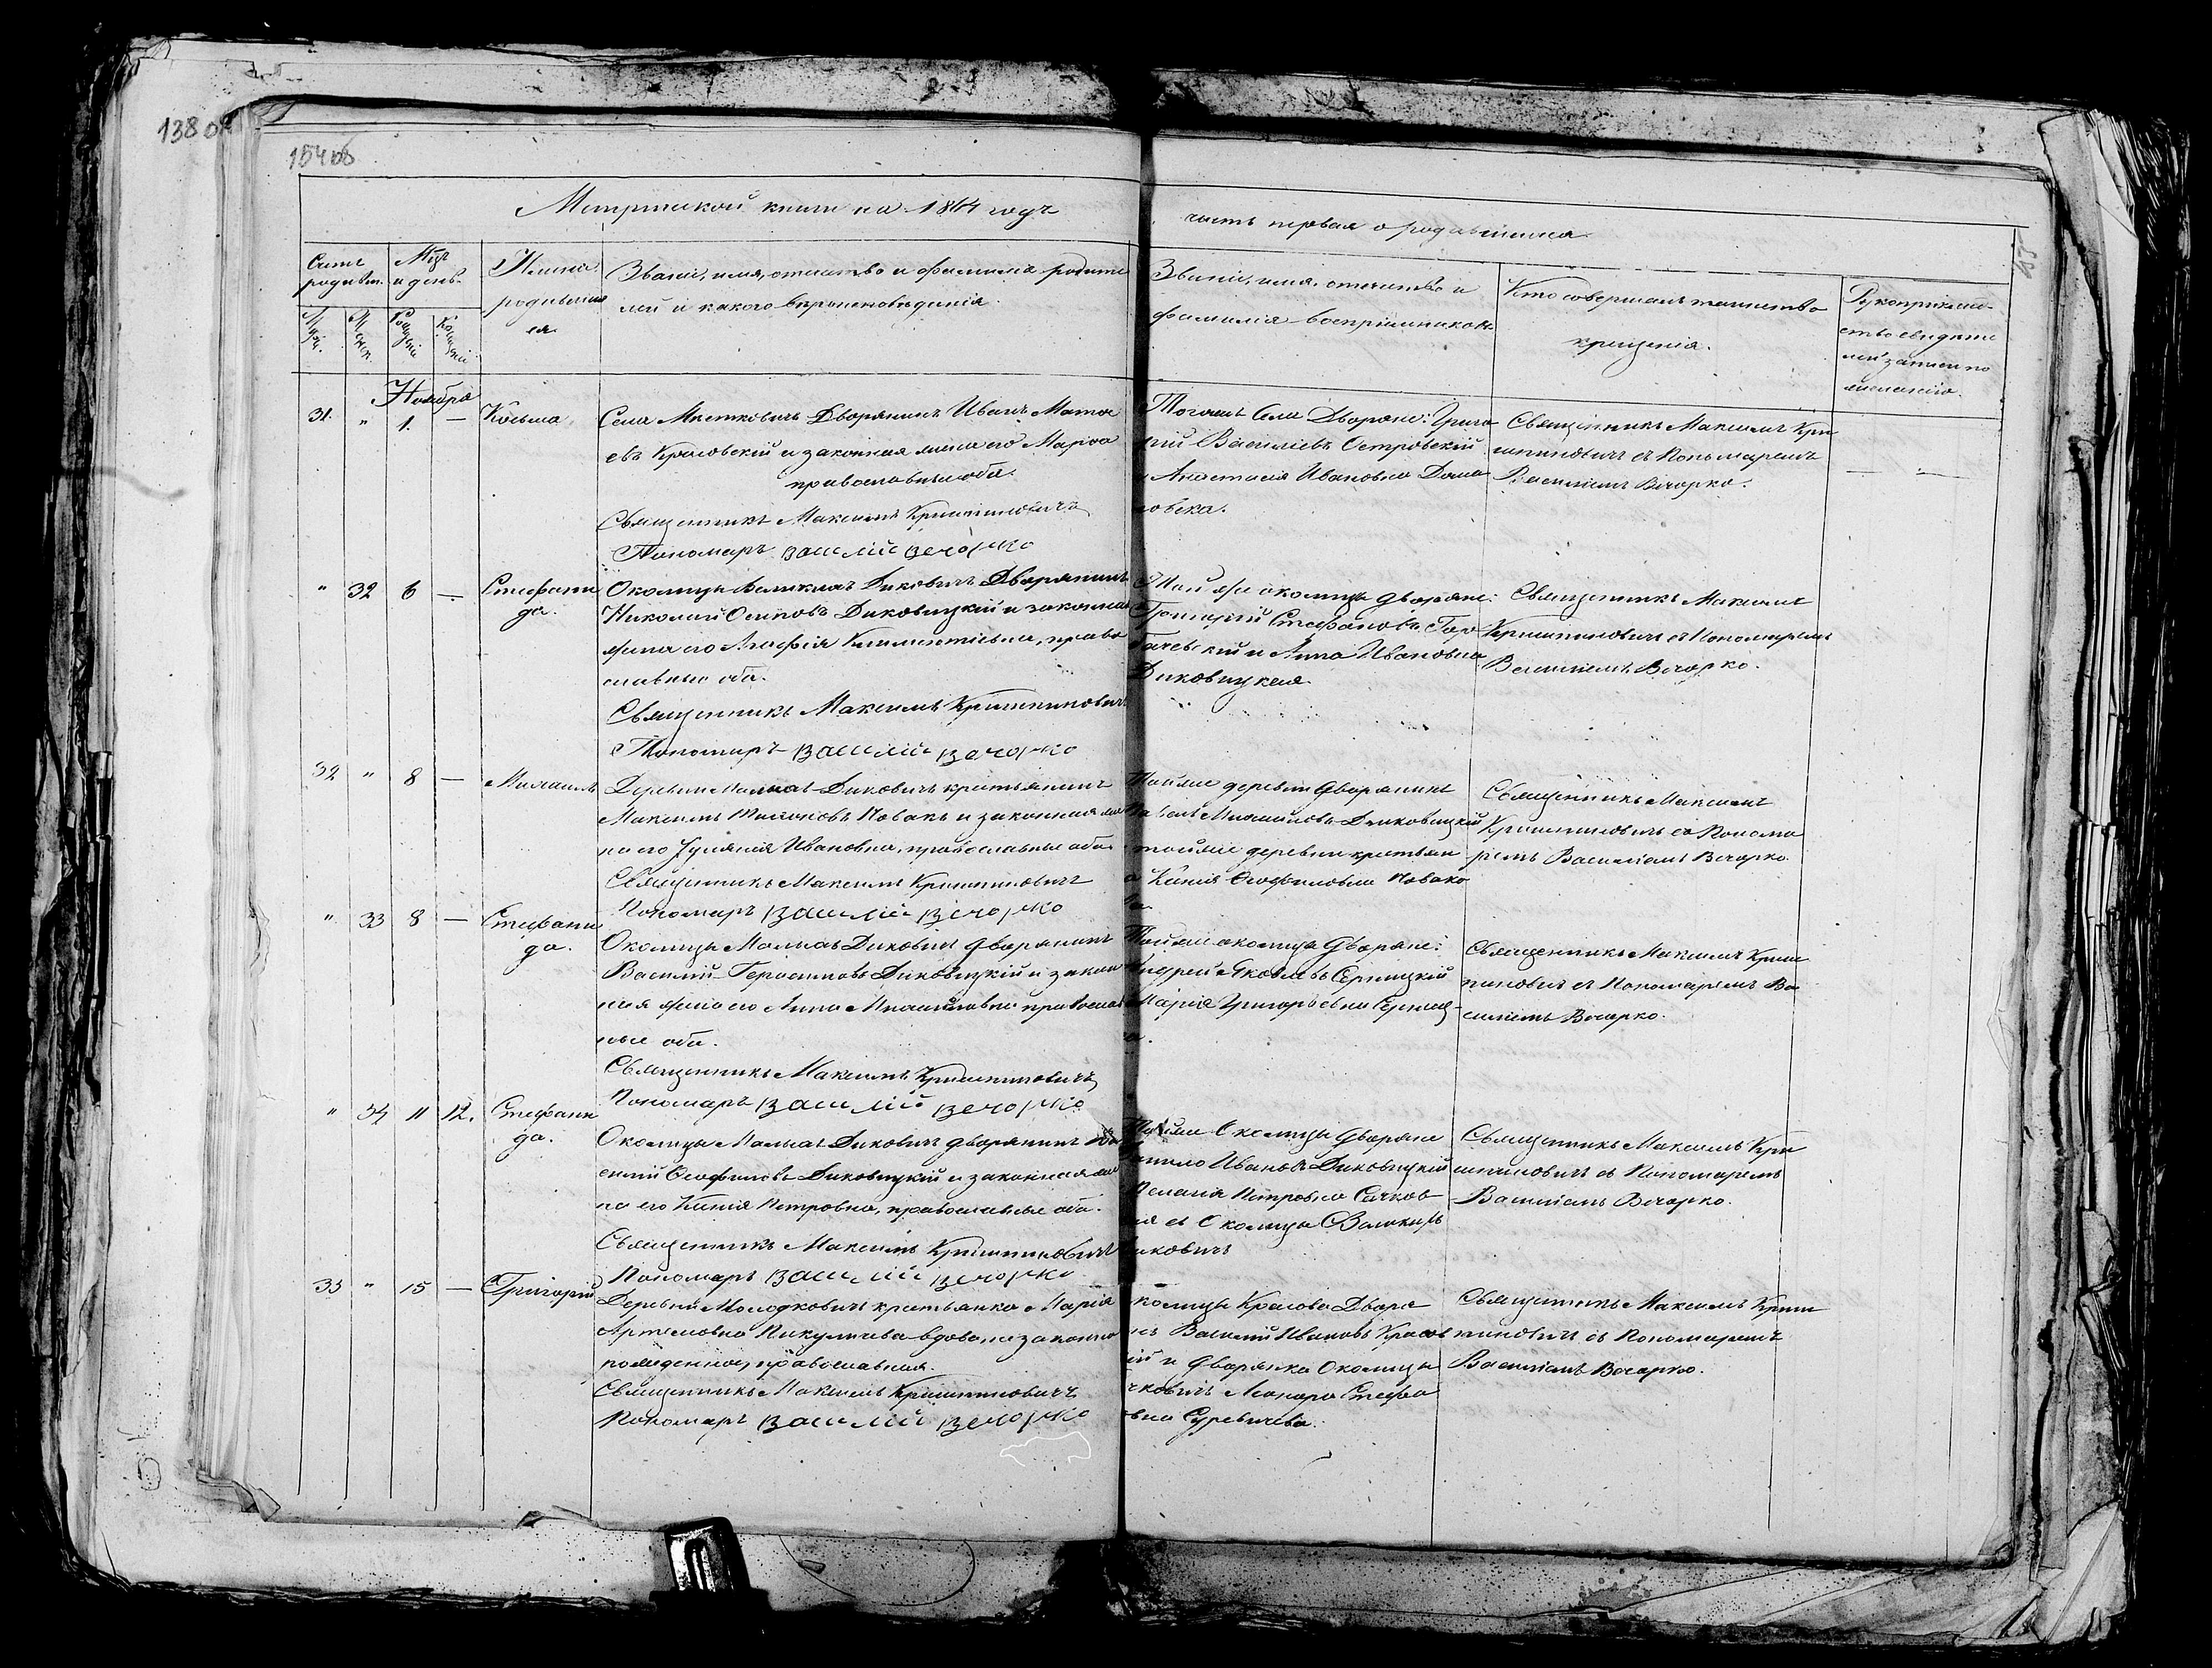 138 об
154 об
Метрической книги на 1864 годъ
часть первая о родившихся
85
Счетъ родивш.
Мцъ и день.
Имена родивших
ся.
Званіе, имя, отчество и фамилія родите
лей и какого вероисповеданія.
Званіе, имя, отчество и
фамилія воспріемниковъ
Кто совершалъ таинство
крещенія.
Рукоприклад
ство свидете
лей записи по
желанію.
Муж.
Женск.
Рожденія
Крещенія
Ноября
31. " 1. — Косьма.
Села Мистковичъ Дворянинъ Иванъ Мато
евъ Красовскій и законная жена его Марѳа
православные оба.
Священникъ Максимъ Криштиновичъ
Пономаръ Василій Вечорко
Тогожъ Села Дворяне: Григо
рій Василіевъ Островскій
и Анастасія Ивановна Дома
новска.
Священникъ Максимъ Кри
штиновичъ съ Пономаремъ
Василіемъ Вечорко.
" 32 6 — Стефани
да.
Околицы Великихъ Диковичъ Дворянинъ
Николай Осиповъ Диковицкій и законная
жена его Агафія Климентіевна, право
славные оба.
Священникъ Максимъ Криштиновичъ
Пономаръ Василій Вечорко
Той же околицы дворяне:
Григорій Стефановъ Гор
бачевскій и Анна Ивановна
Диковицкая.
Священникъ Максимъ
Криштиновичъ съ Пономаремъ
Василіемъ Вечорко.
32 " 8 — Михаилъ
Деревни Малыхъ Диковичъ крестьянинъ
Максимъ Новакъ и законная же
на его Ивановна, православные оба.
Священникъ Максимъ Криштиновичъ
Пономаръ Василій Вечорко
Тойже деревни дворянинъ
Михайловъ Диковицкій
тойже деревни крестьян
а Ксенія Ѳеофиловна Новако
ва.
Священникъ Максимъ
Криштиновичъ со Понома
ремъ Василіемъ Вечорко.
" 33 8 — Стефани
да.
Околицы Малыхъ Диковичъ дворянинъ
Василій Герасимовъ Диковицкій и закон
ная жена его Анна Михайловна православ
ные оба.
Священникъ Максимъ Криштиновичъ
Пономаръ Василій Вечорко
Тойже околицы Дворяне:
Андрей Яковлевъ Серницкій
Марія Григорьевна Серницк
а.
Священникъ Максимъ Кришт
иновичъ съ Пономаремъ Ва
силіемъ Вечорко.
" 34 11 12. Стефани
да.
Околицы Малыхъ Диковичъ дворянинъ Ва
силій Ѳеофиловъ Диковицкій и законная же
на его Ксенія Петровна, православные оба.
Священникъ Максимъ Криштиновичъ
Пономаръ Василій Вечорко
Тойже Околицы Дворяне
Данило Ивановъ Диковицкій
Пелагія Петровна Сачков
ая съ Околицы Великихъ
Диковичъ
Священникъ Максимъ Кри
штиновичъ съ Пономаремъ
Василіемъ Вечорко.
33 " 15 — Григорій
Деревни Молодковичъ крестьянка Марія
Артемовна Пикулина вдова, незаконно
рожденный, православная.
Священникъ Максимъ Криштиновичъ
Пономаръ Василій Вечорко
Околицы Красова Дворя
нъ Василій Ивановъ Красов
скій и дворянка Околицы
Стефа
новна Гуревичева.
Священникъ Максимъ Кришт
иновичъ съ Пономаремъ
Василіемъ Вечорко.